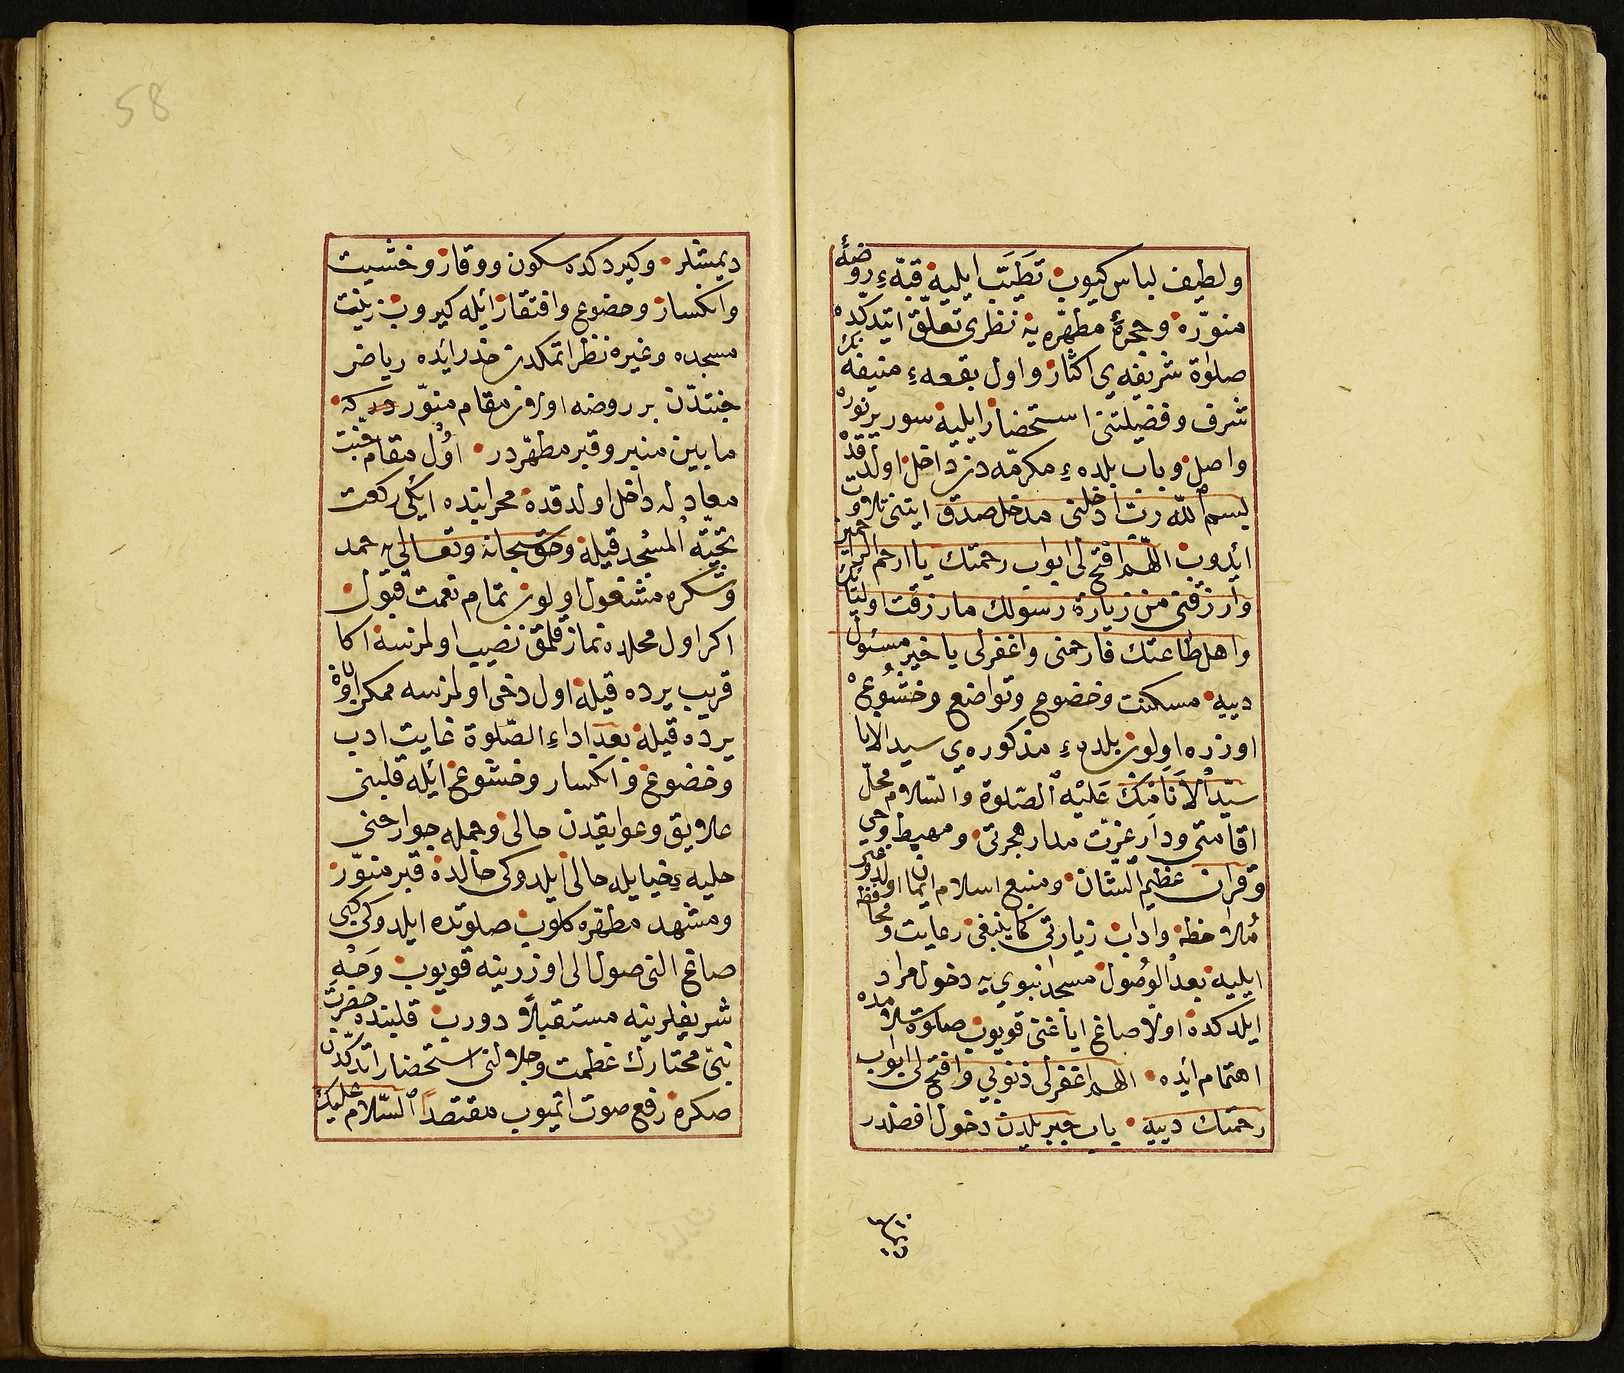 ولطيف لباس كيوب تَطَيُّب ايليه قبّهٔ روضهٔ
منوّره وحجرهٔ مطهّره يه نظرى تعلّق ايتدكده
صلوة شريفه يى اكثار واول بقعهء منيفه نك
شرف وفضيلتنى استحضار ايليه سور برنوره
واصل وباب بلدهء مكرمه دن داخل اولدقده
بسم الله رب ادخلنى مدخل صدق ايتنى تلاوت
ايدوب اللهم افتح لى ابواب رحمتك يا ارحم الراحمين
وارزقنى من زيارة رسولك ما رزقت اوليائك
واهل طاعتك فارحمنى واغفرلى يا خير مسئول
دييه مسكنت وخضوع وتواضع وخشوع
اوزره اولوب بلدهء مذكوره يى سيد الانا
سيّد الاَنامك عَلَيْه الصّلوة والسّلام محلّ
اقامتى ودار عزّت مدار هجرتى ومهبط وحى
وقرآن عظيم الشان ومنبع اسلام ايمان اولدوغنى
مُلاحظه واداب زيارتى كما ينبغى رعايت ومحافظه
ايليه بعد الوصول مسجد نبوى يه دخول مراد
ايلدكده اولا صاغ اياغنى قويوب صلوة سلامده
اهتمام ايده اللهم اغفرلى ذنوبى وافتح لى ابواب
رحمتك دييه باب جبريلدن دخول افضلدر
ديمشلر وكيردكده سكون ووقار وخشيت
وانكسار وخضوع وافتقار ايله كيروب زينت
مسجده وغيره نظر اتمكدن حذر ايده رياض
جنتدن بر روضه اولان مقام منوّر در كه
مابين منبر وقبر مطهّردر اول مقام جنّت
معادله داخل اولدقده محرابنده ايكى ركعت
تحيّة المسجد قيله وحق سبحانه وتعالى يه حمد
وشكره مشغول اولوب تمام نعمت قبول
اكر اول محلده نماز قلمق نصيب اولمزسه اكا
قريب يرده قيله اول دخى اولمزسه ممكن اولان
يرده قيله بعد اداء الصّلوة غايت ادب
وخضوع وانكسار وخشوع ايله قلبنى
علايق وعوايقدن خالى وجمله جوارحنى
حليهء حيا يله حالى ايلدوكى حالده قبر منوّر
ومشهد مطهّره كلوب صلوتده ايلدوكى كبى
صاغ النى صول الى اوزرينه قويوب وَجْهِ
شريفلرينه مستقبلاً دوروب قلبنده حضرت
نبىّ مختارك عظمت وجلالتى استحضار اتدكدن
صكره رفع صوت اتميوب مقتصداً السّلام عليك
58